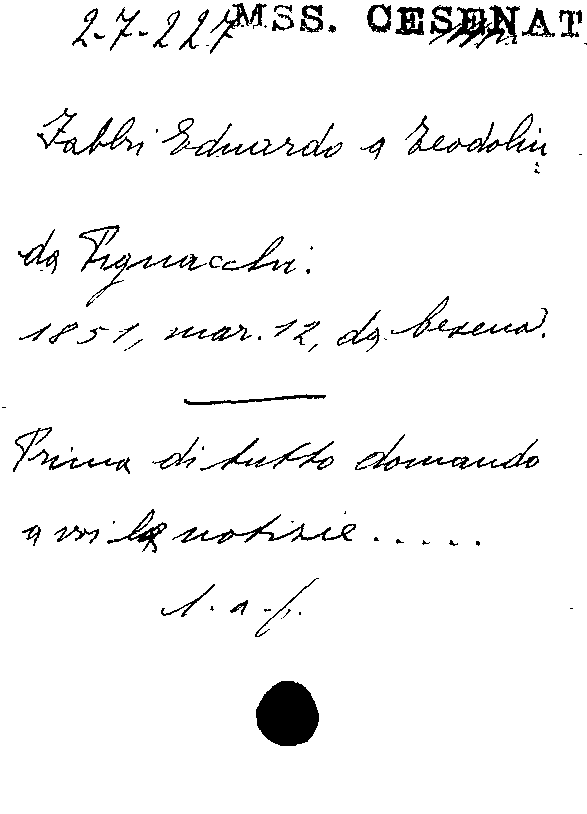 2-7-227 MSS. CESENAT
Fabbri Eduardo a Teodolin
da Pignacchi.
1851, mar. 12, da Cesena.
Prima di tutto domando
a voi le notizie.....
l. a. f.